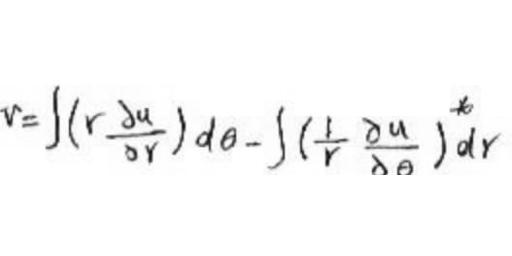 v=∫(r ∂u/∂r)dθ-∫(1/r ∂u/∂θ)*dr